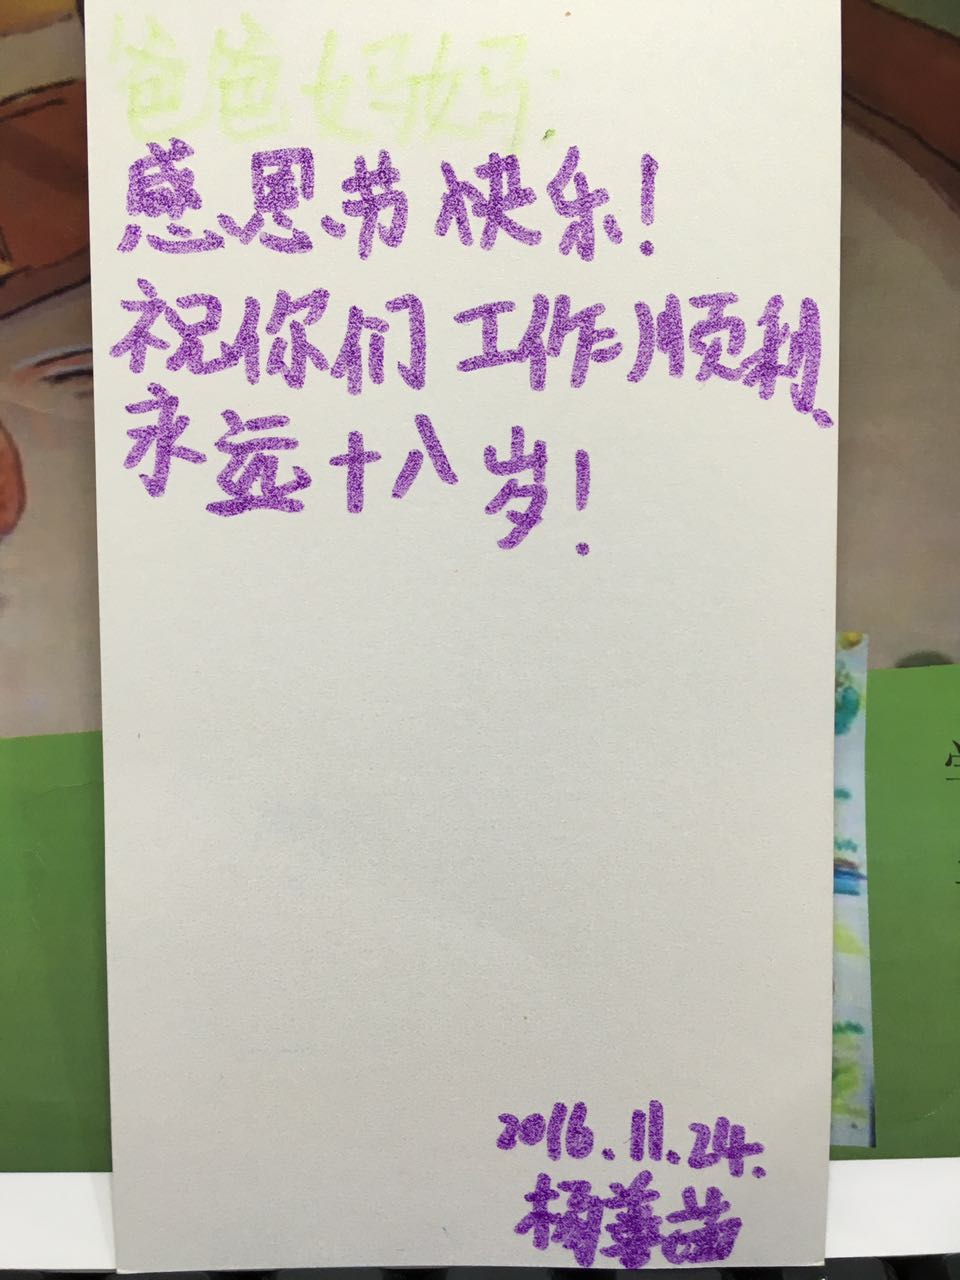 爸爸妈妈:
感恩节快乐!
祝你们工作顺利、
永远十八岁!
2016.11.24.
杨